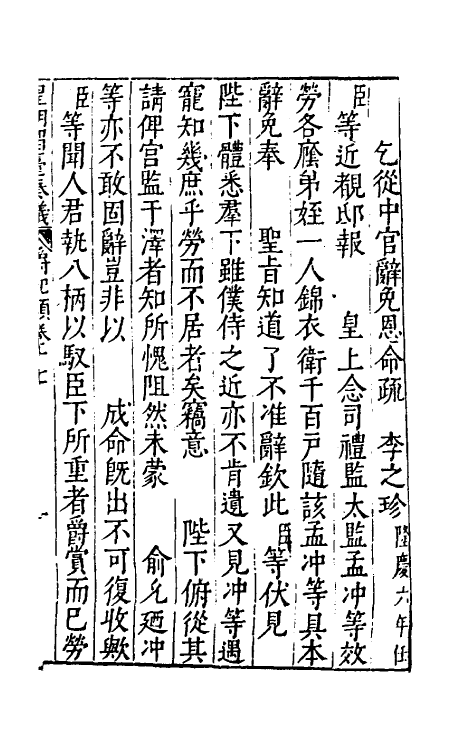 乞從中官辭免恩命疏　李之珍 隆慶六年任
臣等近覩邸報　皇上念司禮監太監孟冲等效
勞各廕弟姪一人錦衣衛千百戸隨該孟冲等具本
辭免奉　聖旨知道了不准辭欽此臣等伏見
陛下體悉羣下雖僕侍之近亦不肯遺又見冲等遇
寵知幾庶乎勞而不居者矣竊意　陛下俯從其
請俾官監干澤者知所愧阻然未蒙　俞允廼冲
等亦不敢固辭豈非以　成命旣出不可復收歟
臣等聞人君執八柄以馭臣下所重者爵賞而已勞
皇明留臺奏議　卷十七